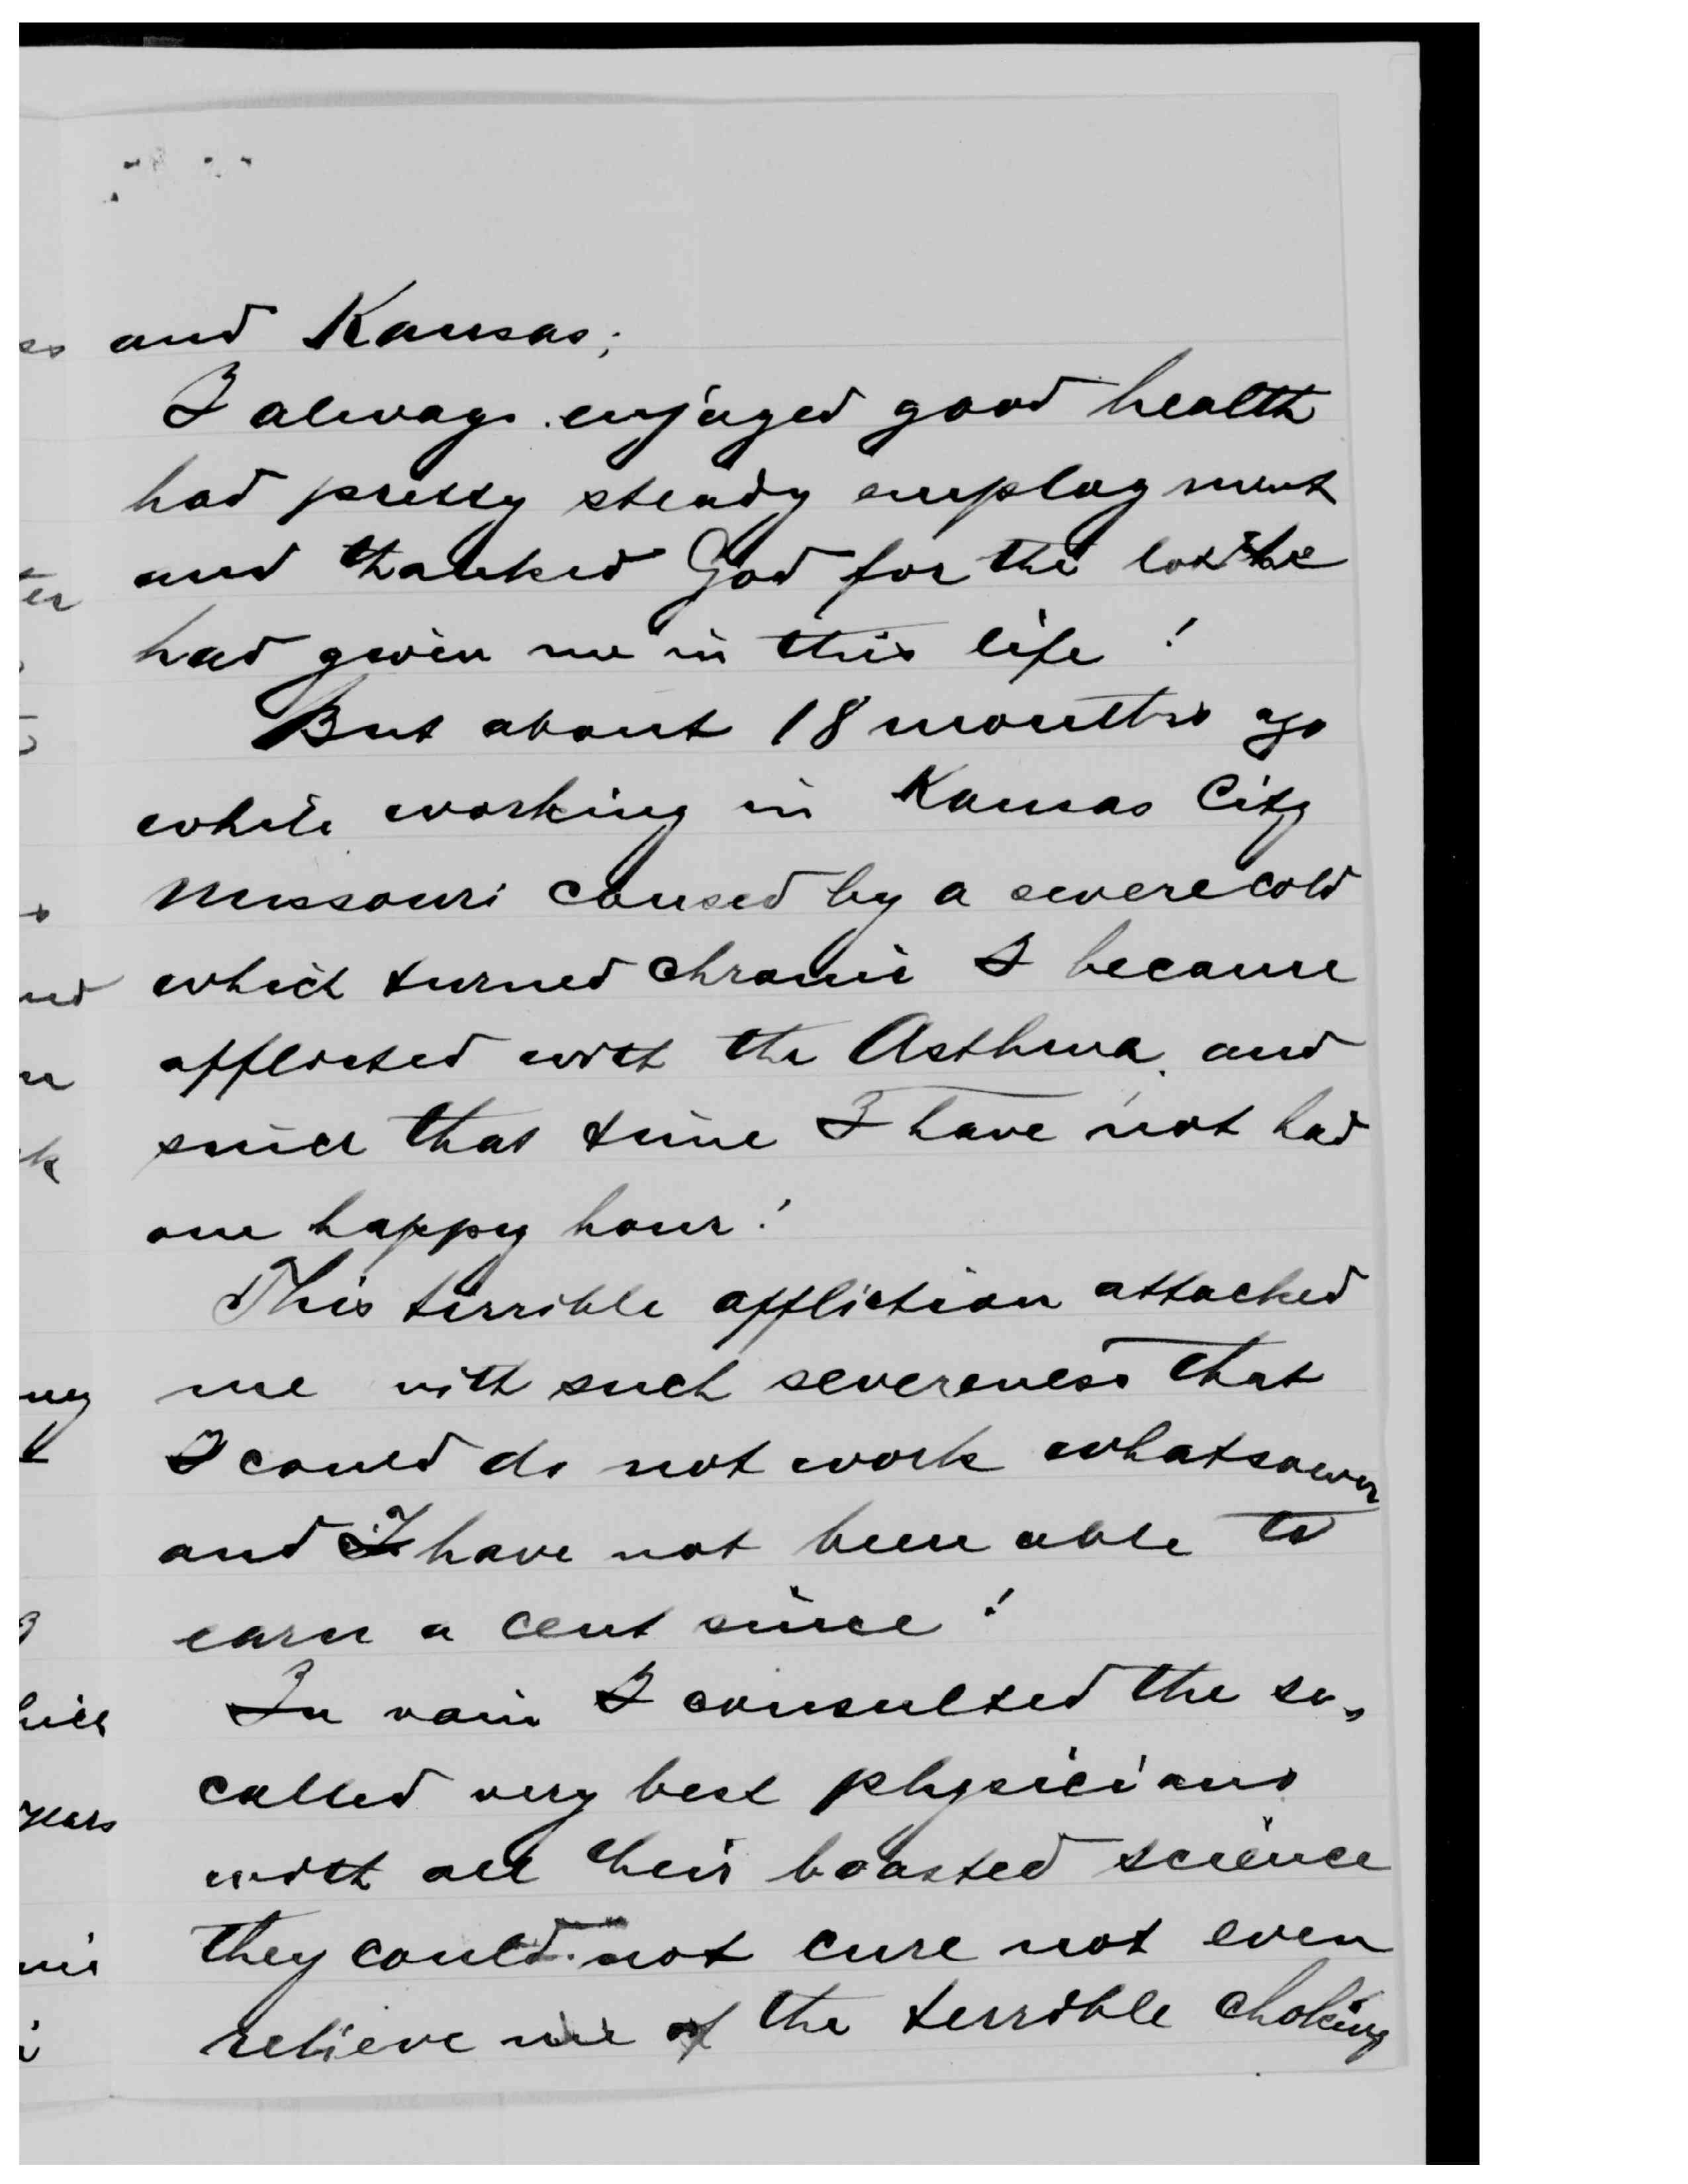 and Kansas;
I always enjoyed good health
had pretty steady employment
and thanked God for the lot he
had given me in this life!
But about 18 months ago
while working in Kansas City
Missouri caused by a severe cold
which turned chronic I became
afflicted with the Asthma. and
since that time I have not had
one happy hour!
This terrible affliction attacked
me with such severeness that
I could do not work whatsoever
and I have not been able to
earn a cent since!
In vain I consulted the so-
called very best physicians
with all their boasted science
they could not cure not even
relieve me of the terrible choking